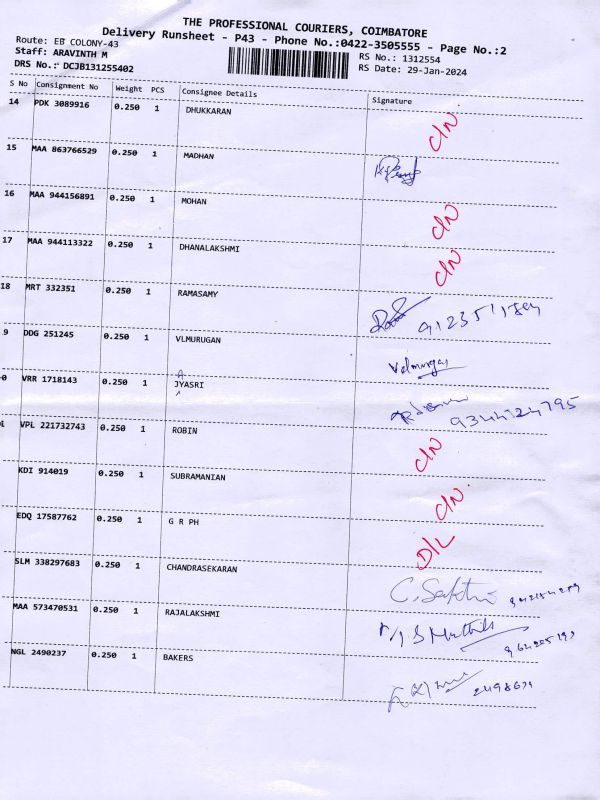 THE PROFESSIONAL COURIERS, COIMBATORE
Delivery Runsheet - P43 - Phone No.:0422-3505555 - Page No.:2
Route: EB COLONY-43
Staff: ARAVINTH M
RS No.: 1312554
DRS No.: DCJB131255402
RS Date: 29-Jan-2024
S No Consignment No Weight PCS Consignee Details Signature
14 PDK 3089916 0.250 1 DHUKKARAN C/N
15 MAA 863766529 0.250 1 MADHAN
16 MAA 944156891 0.250 1 MOHAN C/N
17 MAA 944113322 0.250 1 DHANALAKSHMI C/N
18 MRT 332351 0.250 1 RAMASAMY
9 DDG 251245 0.250 1 VLMURUGAN Velmurgas
A
0 VRR 1718143 0.250 1 JYASRI 9344124795
VPL 221732743 0.250 1 ROBIN C/N
KDI 914019 0.250 1 SUBRAMANIAN C/N
EDQ 17587762 0.250 1 G R PH D/L
SLM 338297683 0.250 1 CHANDRASEKARAN C. Sakthi
MAA 573470531 0.250 1 RAJALAKSHMI
NGL 2490237 0.250 1 BAKERS